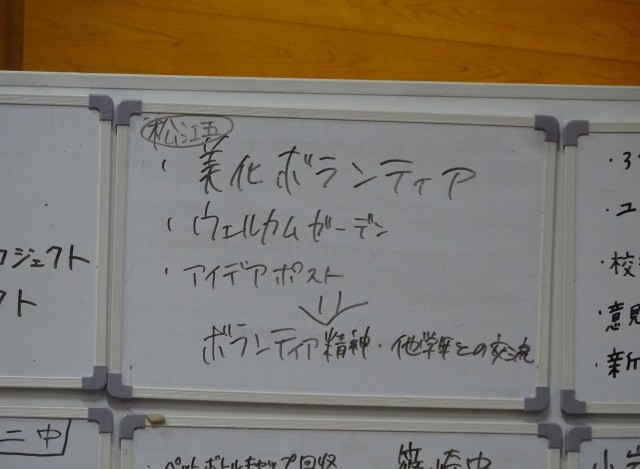 松江五
・美化ボランティア
・ウェルカムガーデン
・アイデアポスト
ボランティア精神・他学年との交流
ロジェクト
クト
二中
・ペットボトルキャップ回収
篠崎中
・校
意見
・新